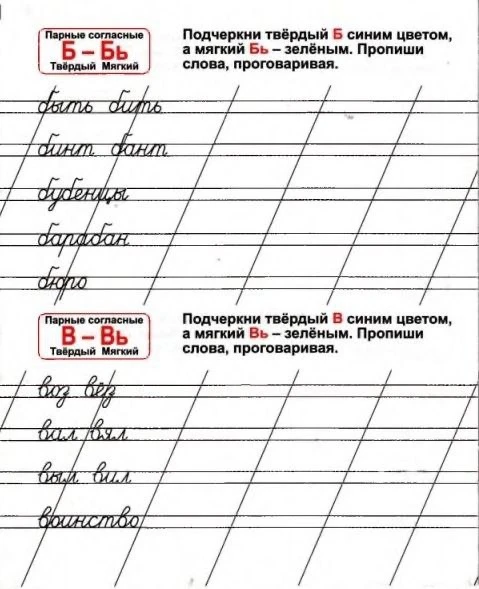 Парные согласные
Б – Бь
Твёрдый Мягкий
Подчеркни твёрдый Б синим цветом,
а мягкий Бь – зелёным. Пропиши
слова, проговаривая.
быть бить
бинт бант
бубенцы
барабан
бюро
Парные согласные
В – Вь
Твёрдый Мягкий
Подчеркни твёрдый В синим цветом,
а мягкий Вь – зелёным. Пропиши
слова, проговаривая.
воз вёз
вал вял
выл вил
воинство